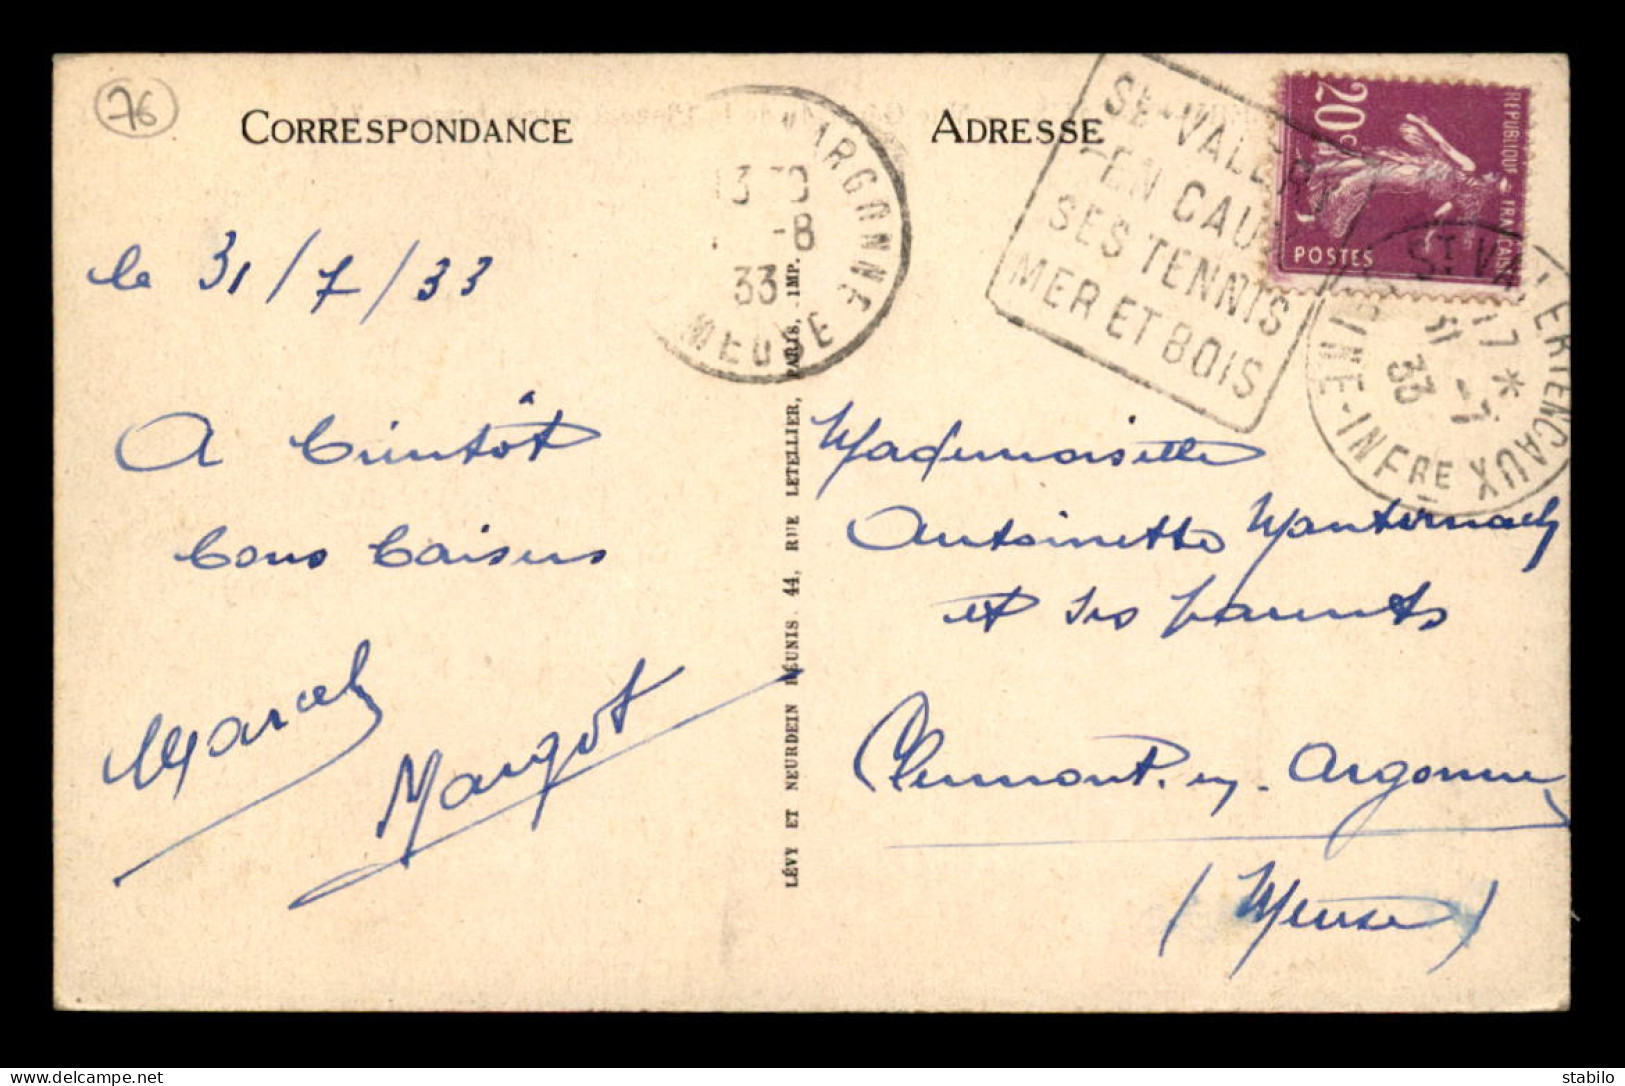 76
CORRESPONDANCE
ADRESSE
le 31/7/33
A bientôt
bons baisers
Marcel
Margot
ARGONNE
MEUSE
-8
33
LÉVY ET NEURDEIN RÉUNIS, 44, RUE LETELLIER, PARIS, IMP.
St-VALERY
-EN CAUX
SES TENNIS
MER ET BOIS
20c
REPUBLIQUE FRANCAISE
POSTES
ST VALERY EN CAUX
SEINE-INFRE
17 *
31 -7
33
Mademoiselle
Antoinette
et ses parents
Clermont-en-Argonne
(Meuse)
stabilo